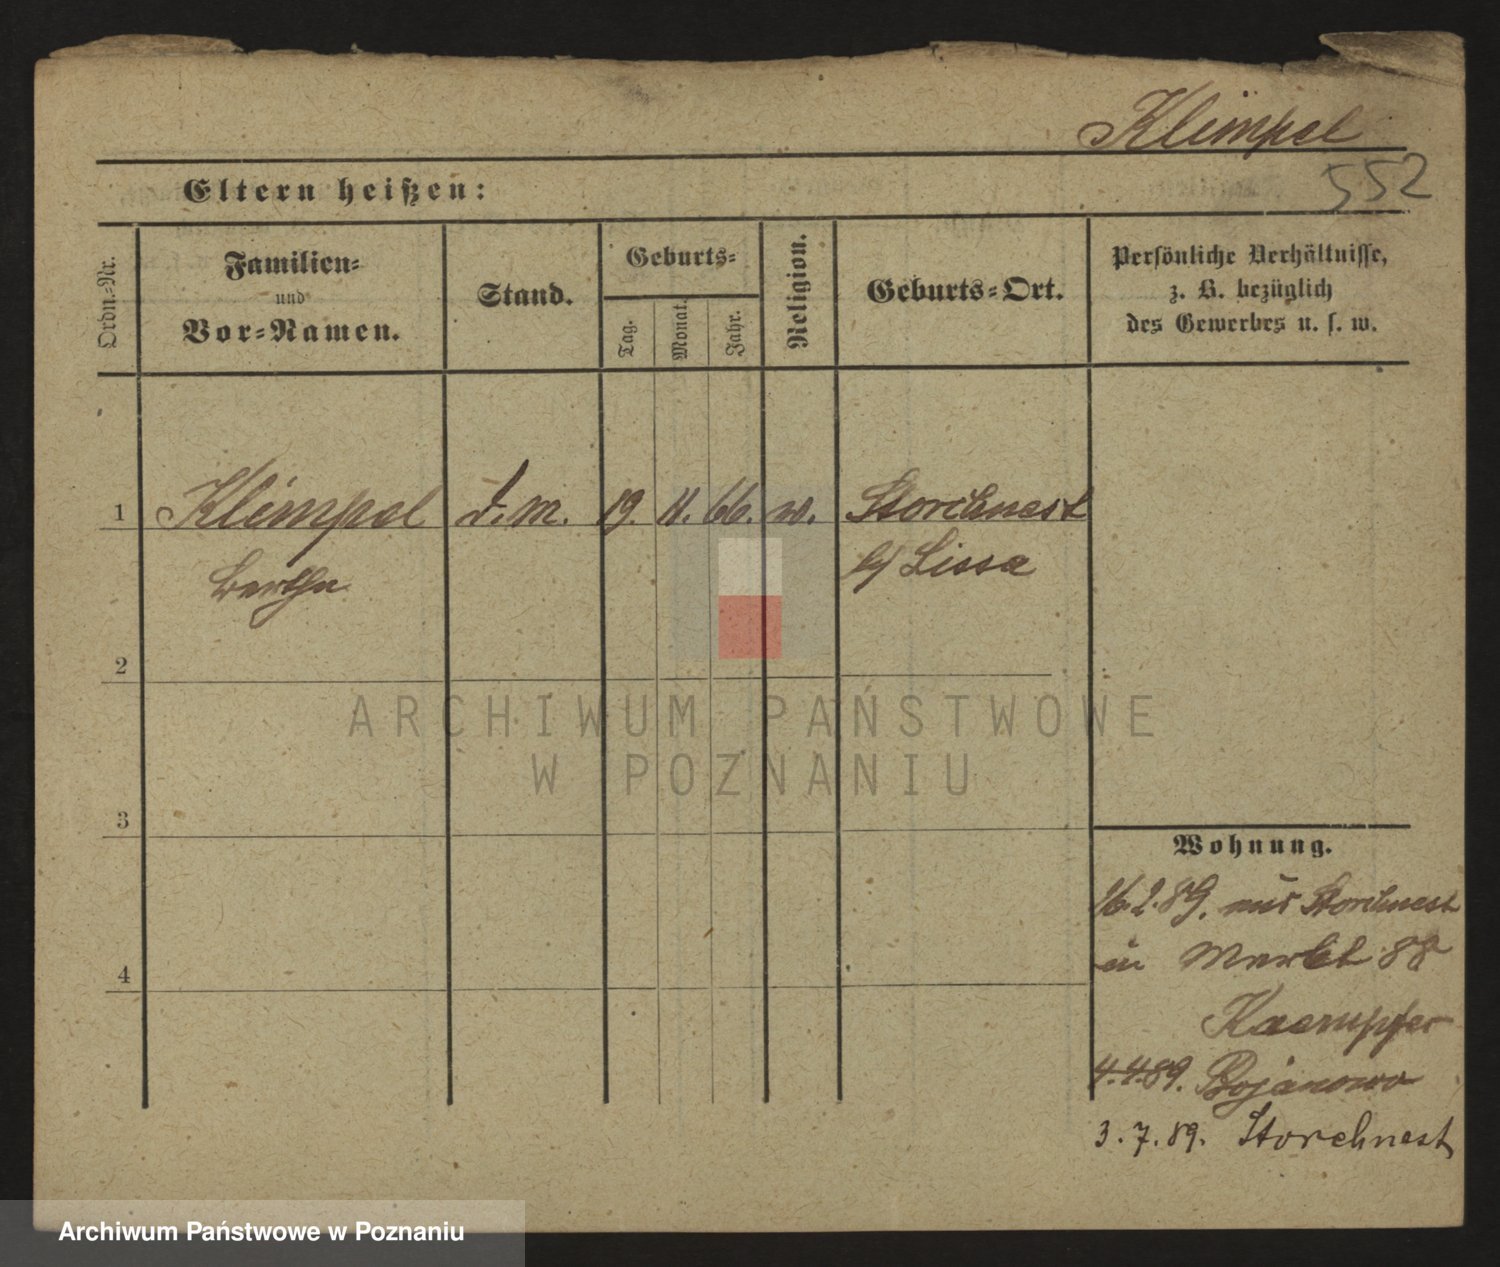 Klimpel
552
Eltern heißen:
Ordn.-Nr.
Familien-
und
Vor-Namen.
Stand.
Geburts-
Tag.
Monat.
Jahr.
Religion.
Geburts-Ort.
Persönliche Verhältnisse,
z. B. bezüglich
des Gewerbes u. s. w.
1 Klimpel d. m. 19. 11. 66. Storchnest
Bertha
b/ Lissa
2
3
4
Wohnung.
16.2.89. aus Storchnest
in Markt 88
Kaempfer
4.4.89. Bojanowo
3.7.89. Storchnest
ARCHIWUM PAŃSTWOWE
W POZNANIU
Archiwum Państwowe w Poznaniu